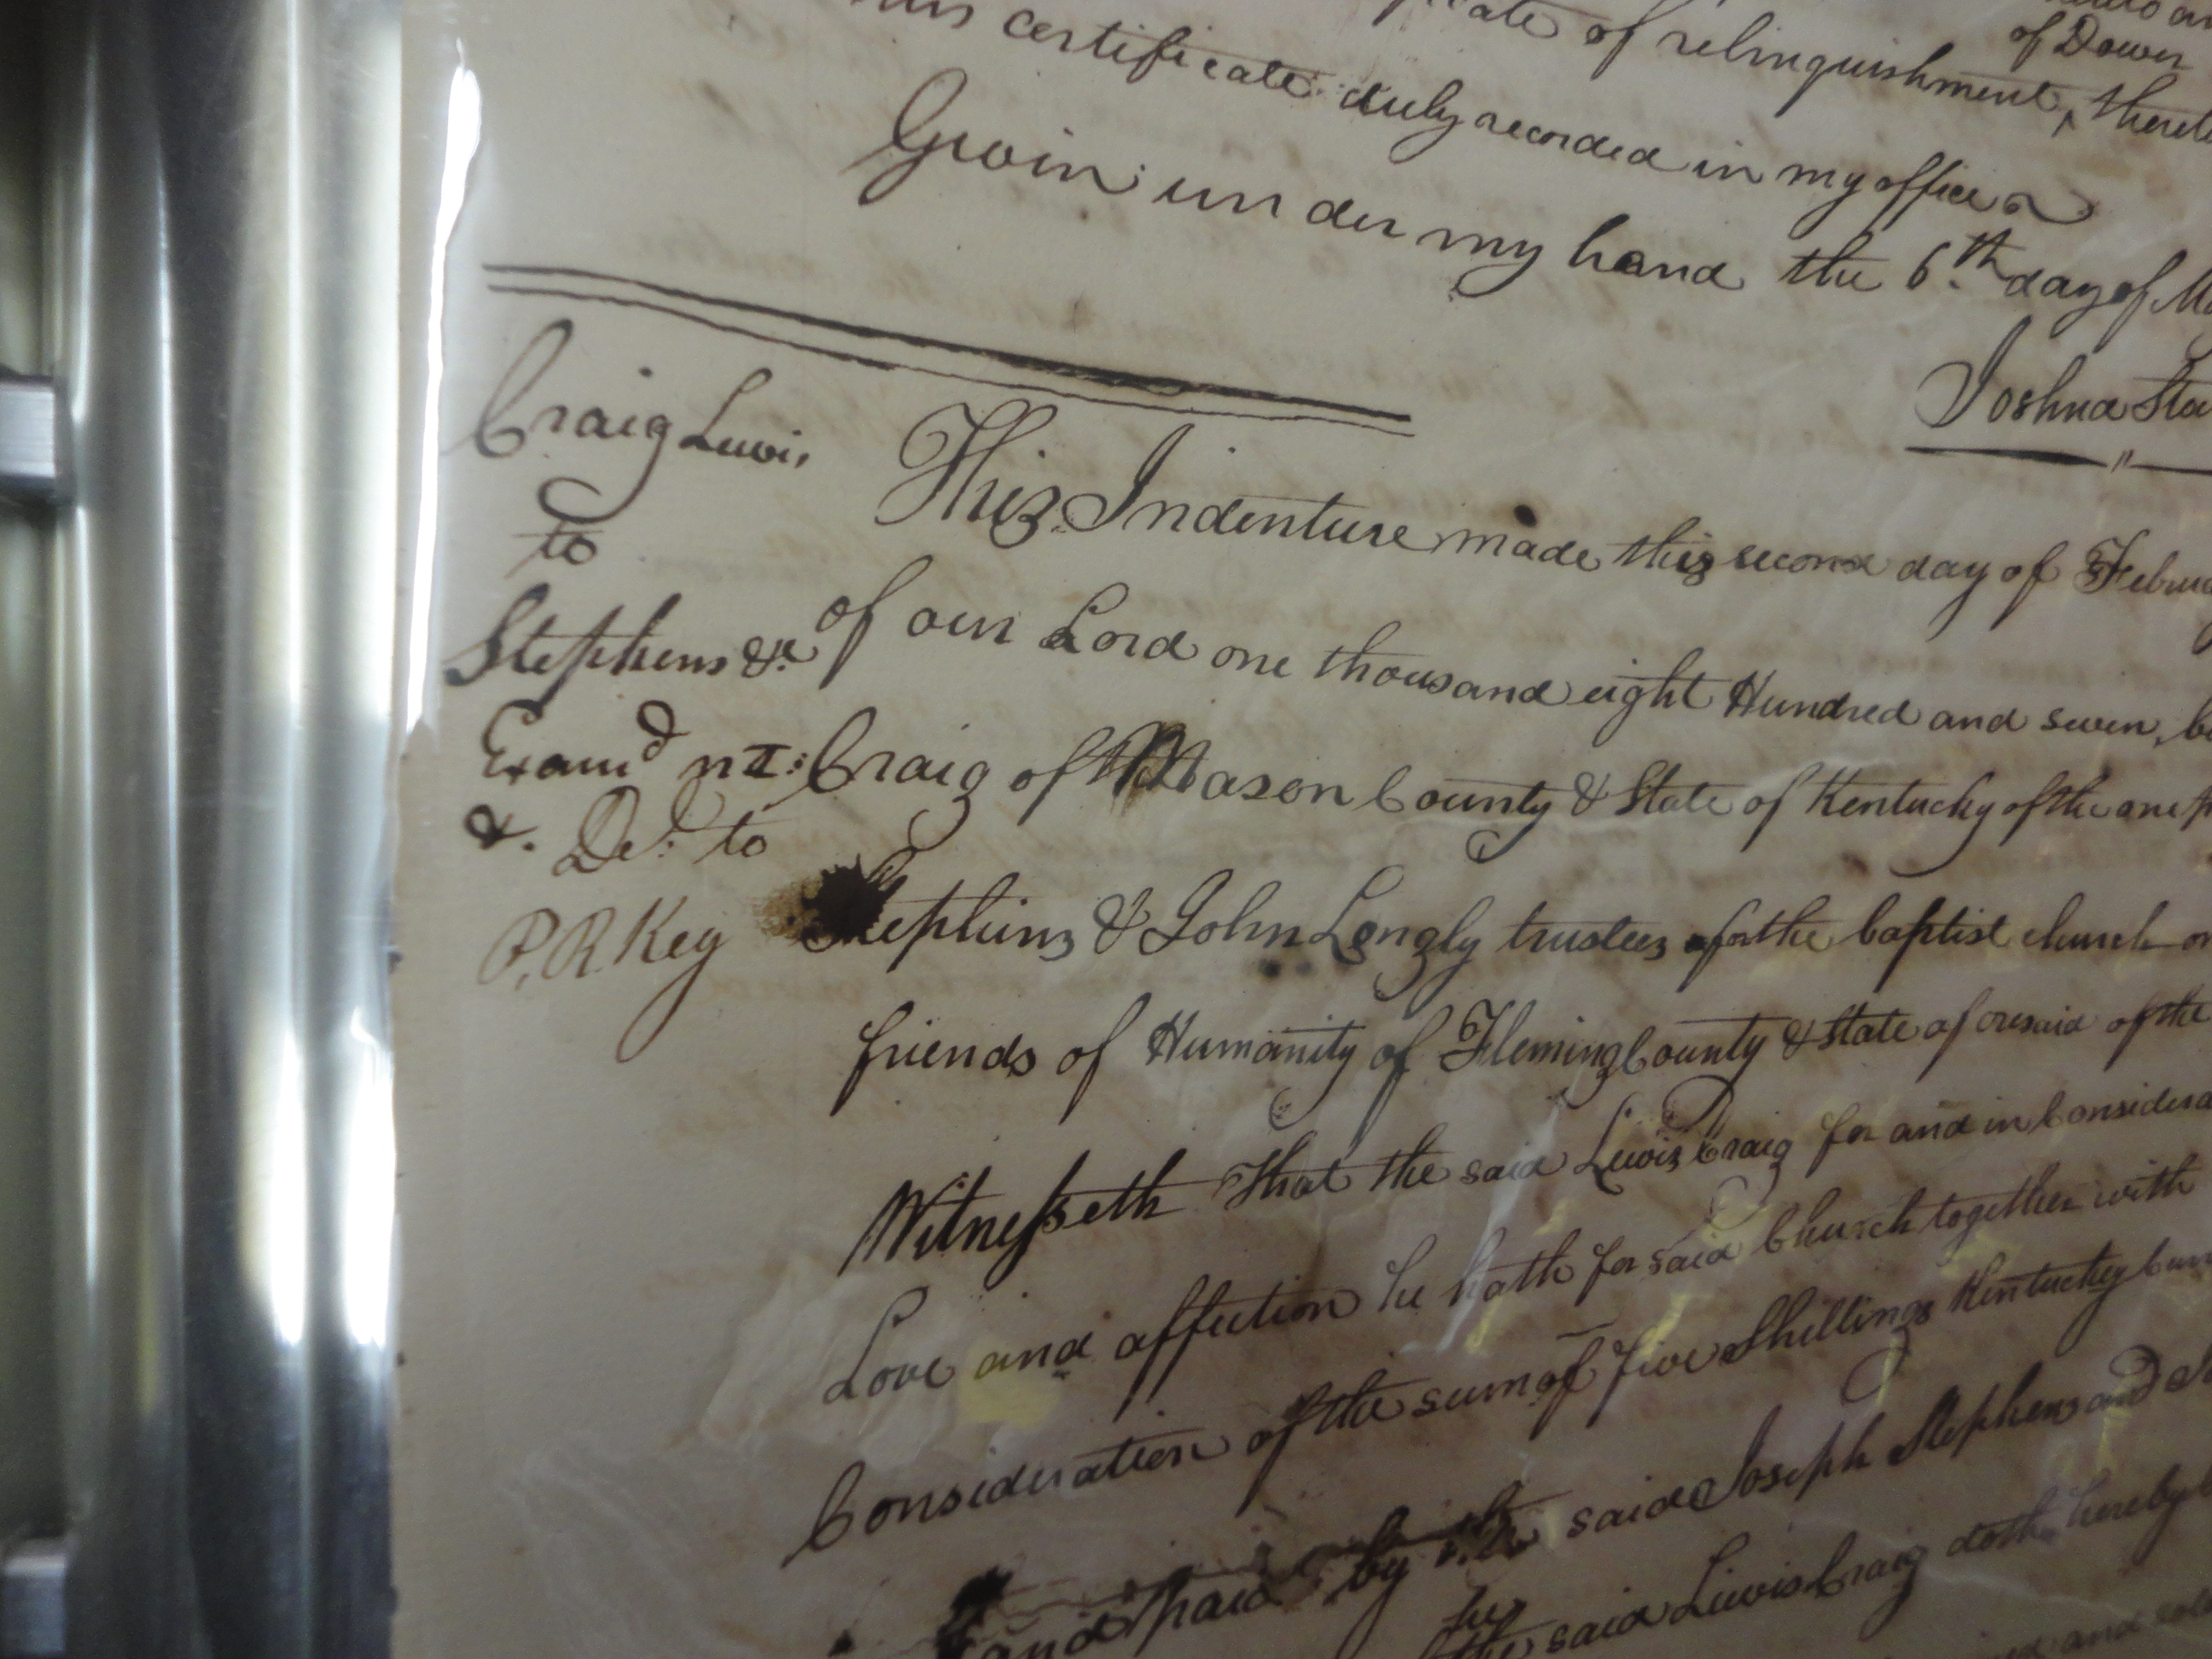 of Dower
cate of relinquishment, thereto
certificate duly recorded in my office
Given under my hand the 6.th day of
Joshua
Craig Lewis
to
Stephens &c
Examd
&. De: to
P. R Key
This Indenture made this second day of Februa
of our Lord one thousand eight Hundred and seven, be
Craig of Mason County & State of Kentucky of the one
Stephens & John Longly trustees for the baptist church
friends of Humanity of Fleming County & State aforesaid of the
Witnesseth That the said Lewis Craig for and in Considera
Love and affection he hath for said Church together with
Consideration of the sum of five Shillings Kentuckey
and paid by the said Joseph Stephens and
he
the said Lewis Craig doth hereby
and